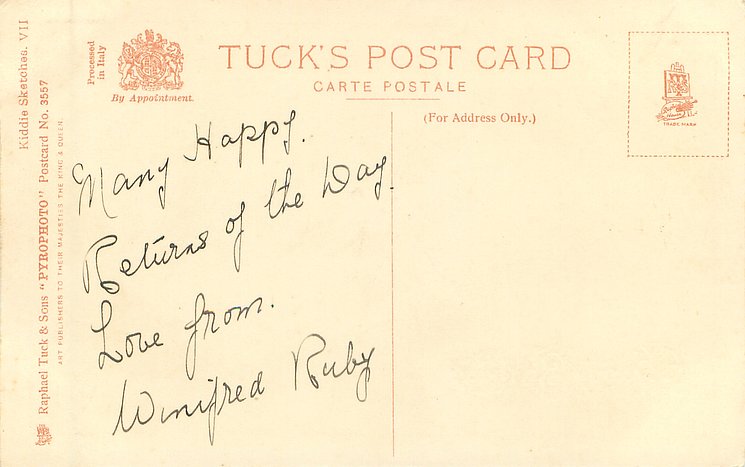 TUCK'S POST CARD
CARTE POSTALE
(For Address Only.)
Processed
in Italy
By Appointment.
TRADE MARK
Kiddie Sketches. VII
Raphael Tuck & Sons "PYROPHOTO" Postcard No. 3557
ART PUBLISHERS TO THEIR MAJESTIES THE KING & QUEEN.
Many Happy.
Returns of the Day.
Love from.
Winifred Ruby